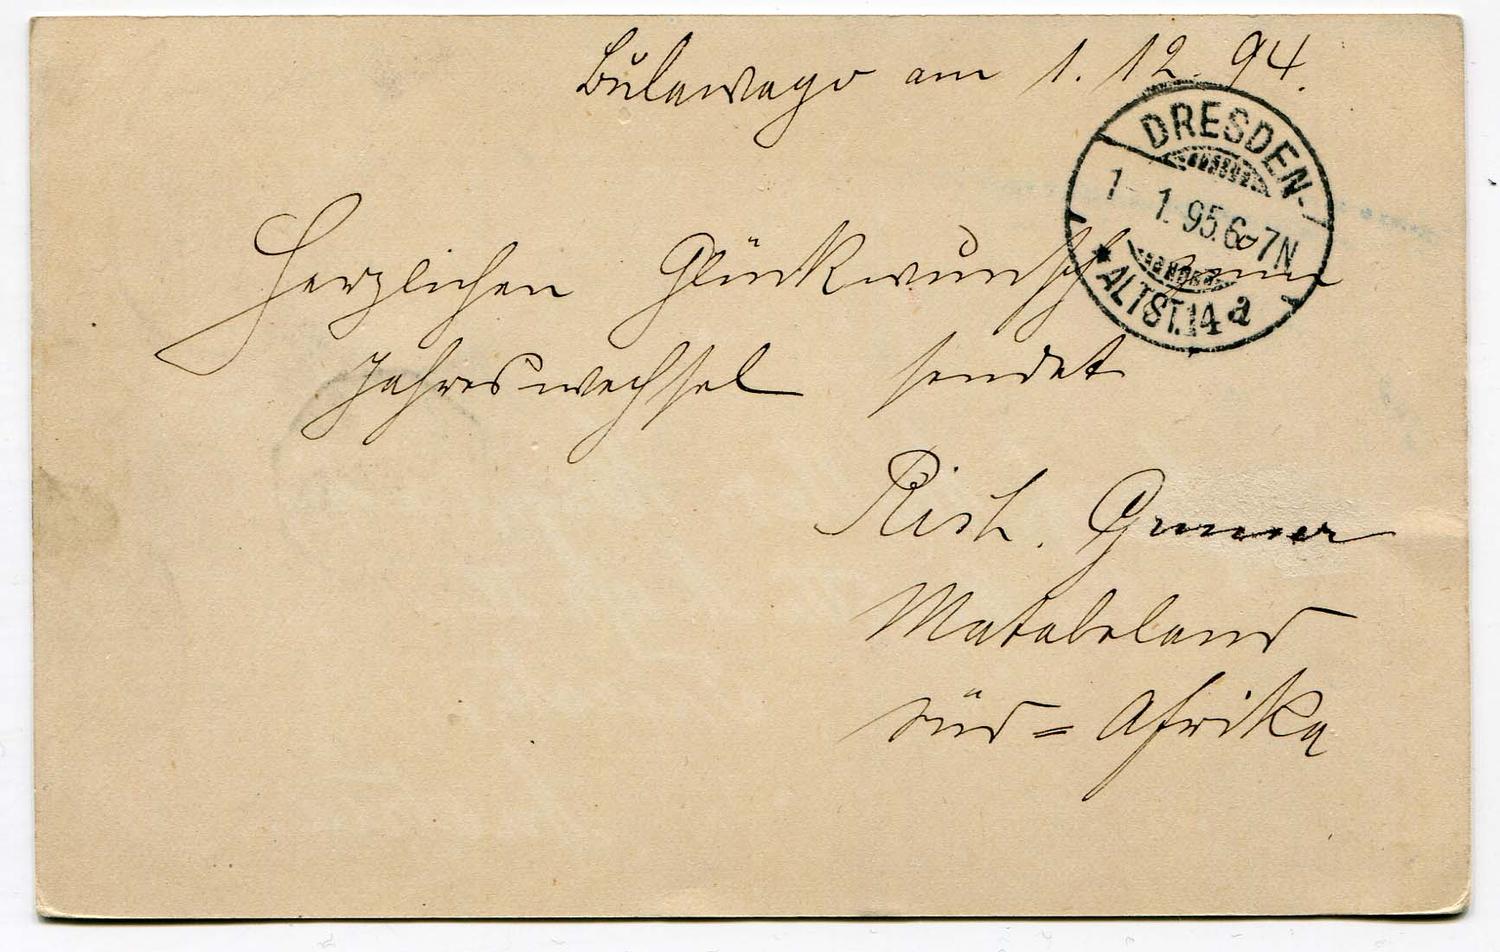 Bulawayo am 1.12.94.
DRESDEN-
1- 1.95.6-7N
* ALTST.14 a
Herzlichen Glückwunsch zum
Jahreswechsel sendet
Rich.
Matabeleland
Süd=Afrika